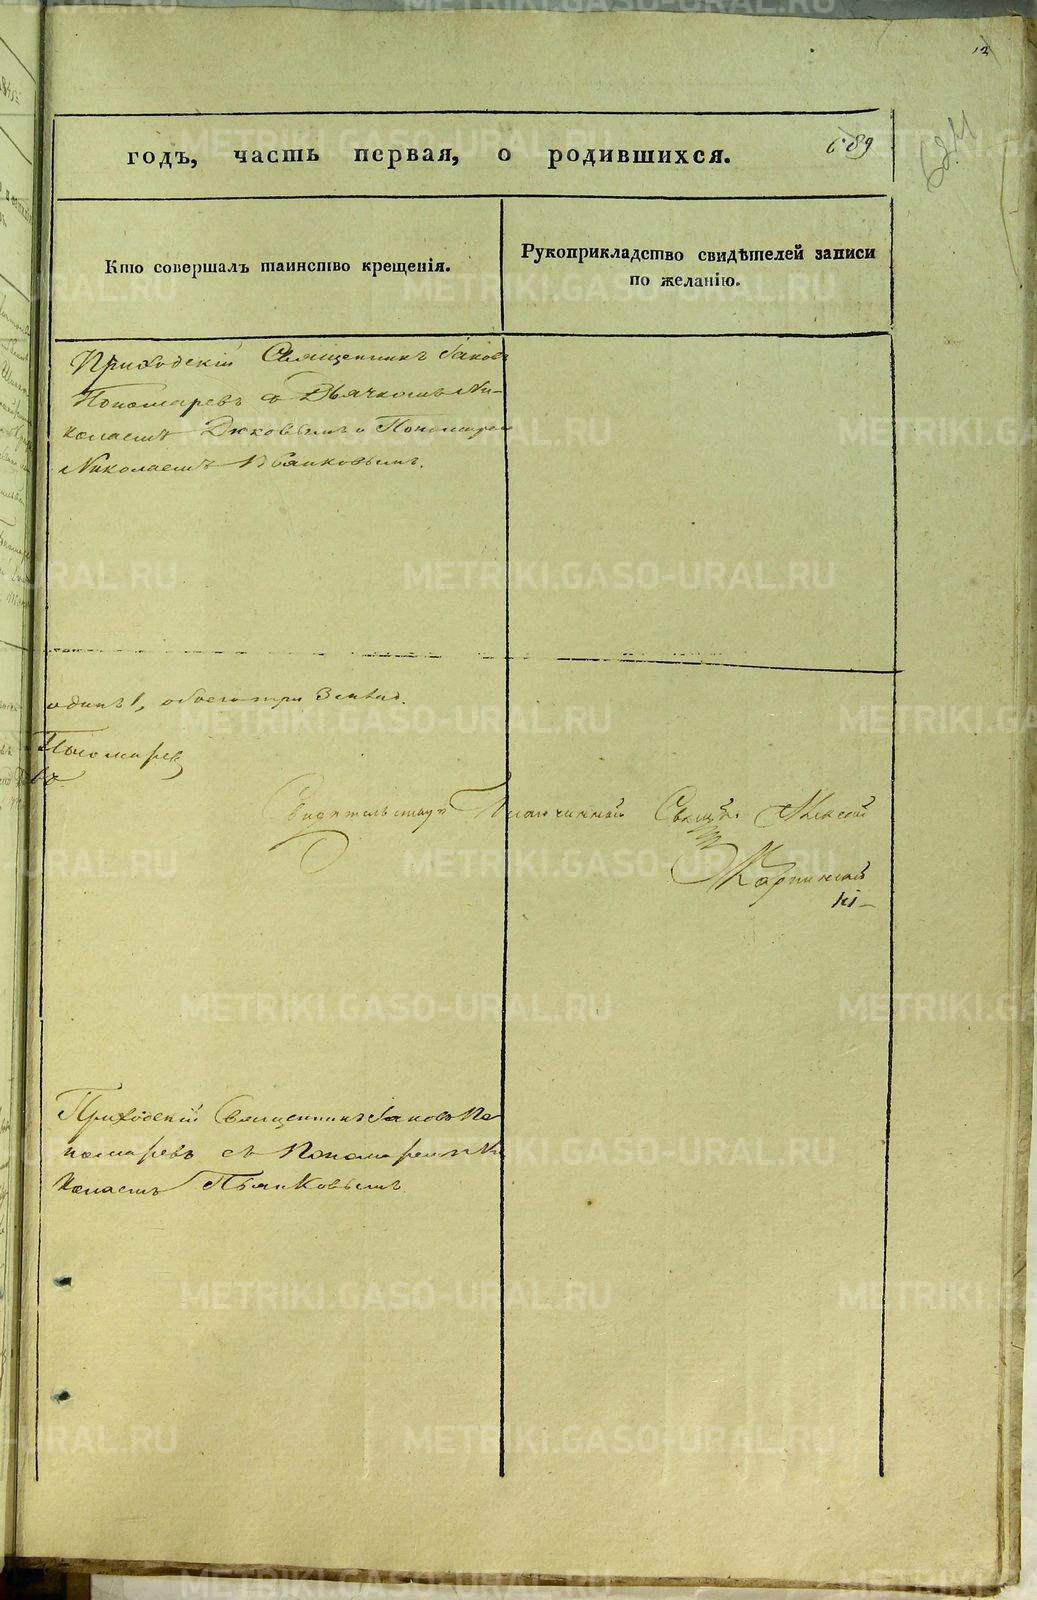 12
689
годъ, часть первая, о родившихся.
Кто совершалъ таинство крещенія.
Рукоприкладство свидѣтелей записи
по желанію.
Приходскій Священникъ Іаковъ
Пономаревъ съ Дьячкомъ Ни-
колаемъ Дюковымъ и Пономаремъ
Николаемъ Пьянковымъ.
одинъ 1, обоего три
Пономарев
въ
Благочинный Свящ. Алексій
Карпинскій
Приходскій Священникъ Іаковъ По
номаревъ съ Пономаремъ Ни
колаемъ Пьянковымъ
METRIKI.GASO-URAL.RU